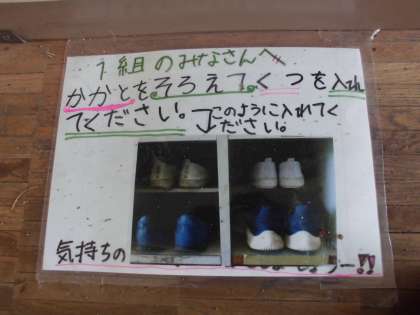 1組のみなさんへ
かかとをそろえて。くつを入れ
てください。
このように入れてく
ださい。
気持ちの
しょうー!!